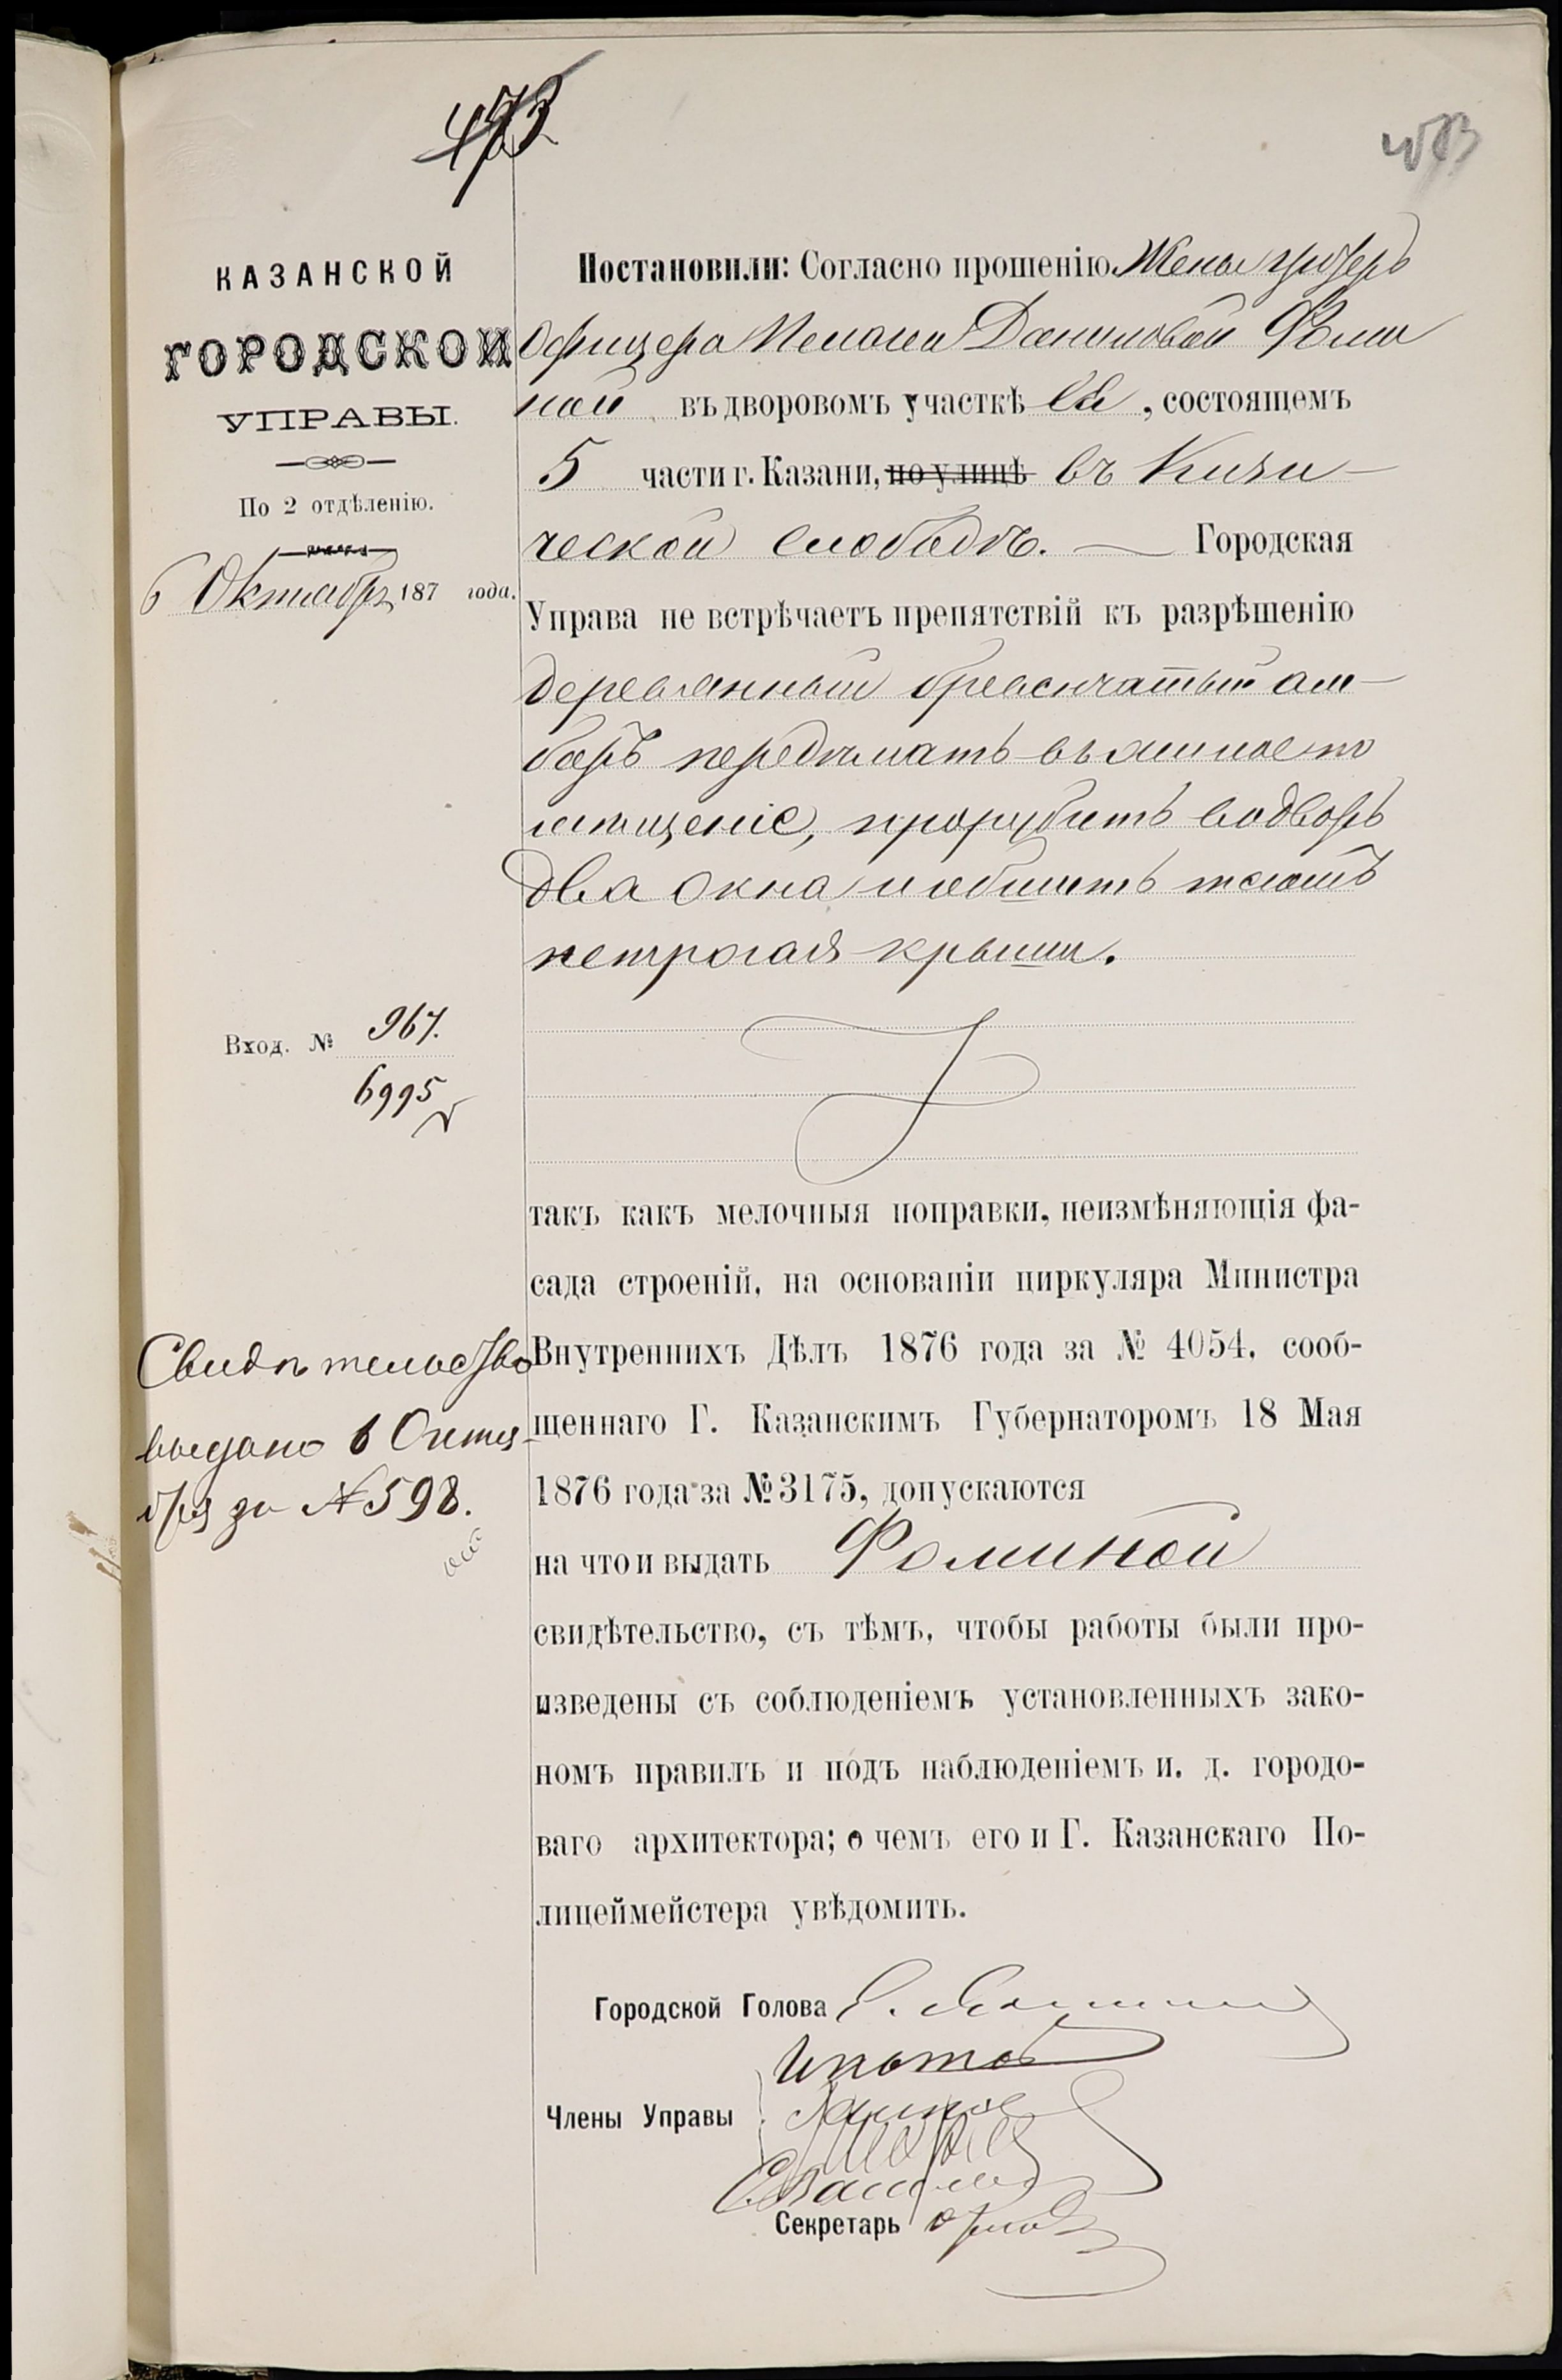 473
473
КАЗАНСКОЙ
ГОРОДСКОЙ
УПРАВЫ.
По 2 отдѣленію.
6 Октября 187 года.
Вход. № 967.
6995
Свидѣтельство
выдано 6 Октя-
бря за № 598.
Постановили: Согласно прошенію Жены унтеръ
офицера Пелагеи Даниловой Фоми
ной въ дворовомъ участкѣ ея, состоящемъ
5 части г. Казани, по улицѣ въ Кизи-
ческой слободѣ. — Городская
Управа не встрѣчаетъ препятствій къ разрѣшенію
деревянный бревенчатый ам-
баръ передѣлать въ жилое по
мѣщеніе, прорубить во дворъ
два окна и обшить тесомъ
нетрогая крыши.
такъ какъ мелочныя поправки, неизмѣняющія фа-
сада строеній, на основаніи циркуляра Министра
Внутреннихъ Дѣлъ 1876 года за № 4054, сооб-
щеннаго Г. Казанскимъ Губернаторомъ 18 Мая
1876 года за № 3175, допускаются
на что и выдать Фоминой
свидѣтельство, съ тѣмъ, чтобы работы были про-
изведены съ соблюденіемъ установленныхъ зако-
номъ правилъ и подъ наблюденіемъ и. д. городо-
ваго архитектора; о чемъ его и Г. Казанскаго По-
лицеймейстера увѣдомить.
Городской Голова
Члены Управы
Секретарь